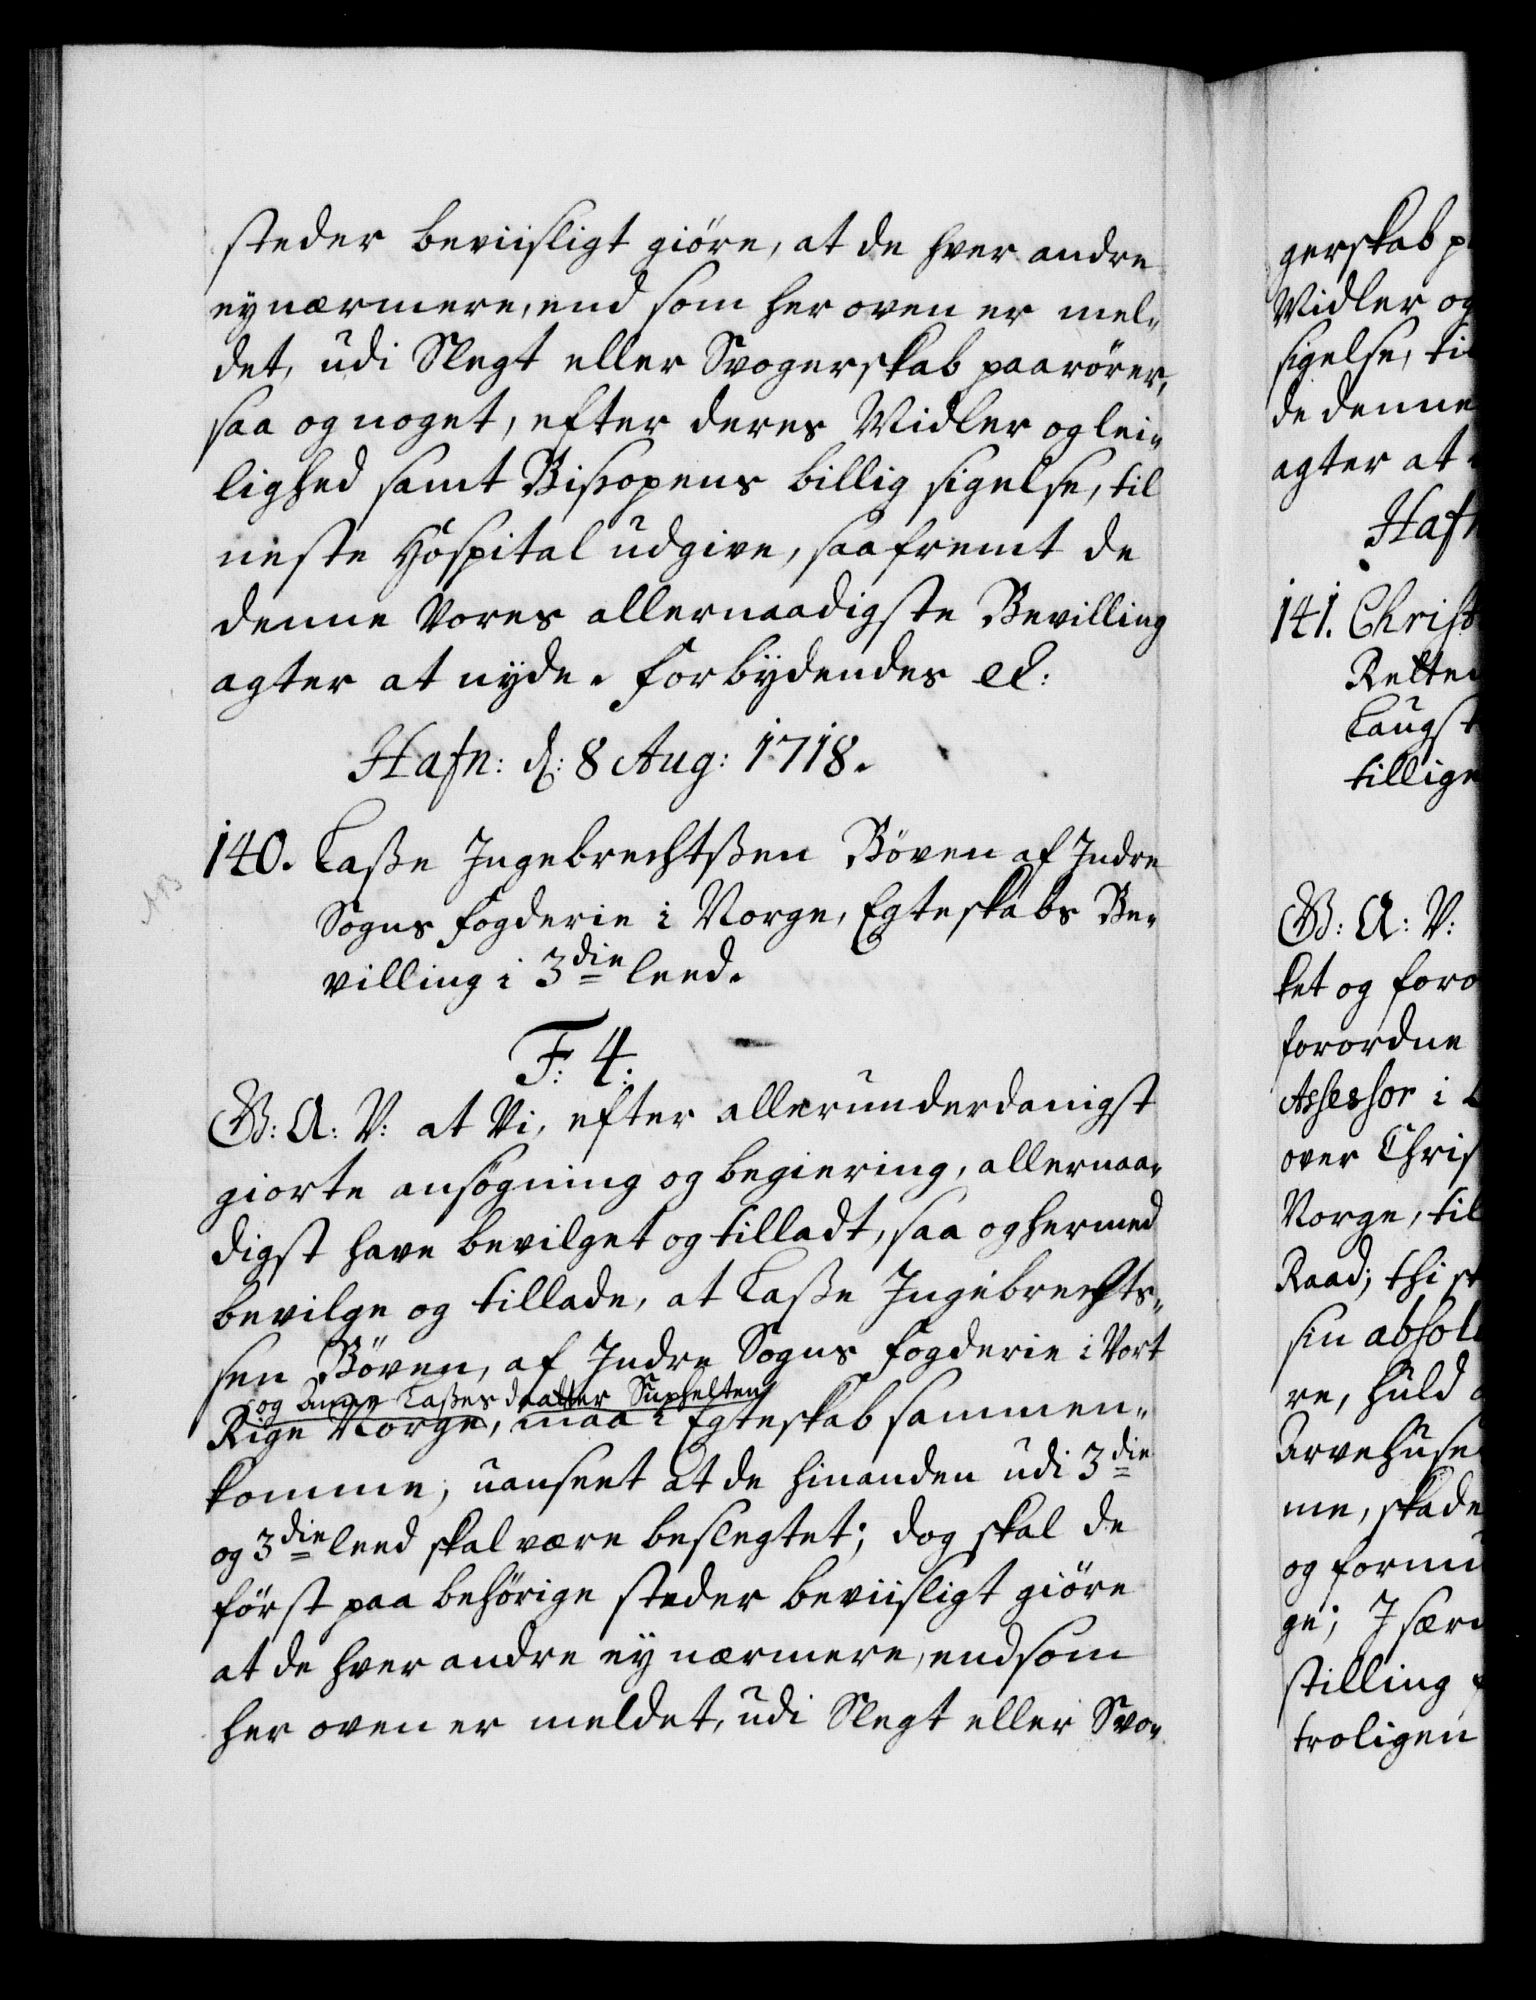 steder beviisligt giöre, at de hver andre
ey nærmere, end som her oven er mel-
det, udi Slegt eller Svogerskab paarörer,
saa og noget, efter deres Midler og lei-
lighed samt Bispopens billig sigelse, til
neste Hospital udgive, saafremt de
denne Vores allernaadigste Bevilling
agter at nyde. Forbydendes etc:
Hafn: d: 8 Aug: 1718.
140. Lasse Ingebrechtssen Böven af Indre
Sogns Fogderie i Norge, Egteskabs Be-
villing i 3die leed.
F: 4:
G: A: V: at Vi, efter allerunderdanigst
giorte ansögning og begiering, allernaa-
digst have bevilget og tilladt, saa og hermed
bevilge og tillade, at Lasse Ingebrechts-
sen Böven, af Indre Sogns Fogderie i Vort
og Lasses daatter Suphelten
Rige Norge, maa i Egteskab sammen-
komme, uanseet at de hinanden udi 3die
og 3die leed skal være beslegtet; dog skal de
först paa behörige steder beviisligt giöre
at de hver andre ey nærmere, end som
her oven er meldet, udi Slegt eller Svo-
gerskab
Midler og
sigelse, til
de denne
agter at
Haf
141. Christ
Rette
Laugst
tillige
G: A: V:
ket og foro
forordne
Assessor i
over Chris
Norge, til
Raad; thi
sin absol
re, huld
Arvehuse
me, skade
og formu
ge; I sær
stilling
troligen